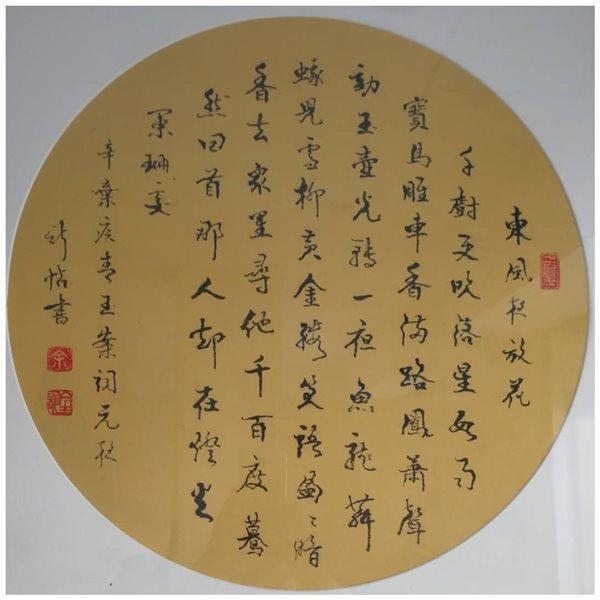 東風夜放花
千樹更吹落星如雨
寶馬雕車香滿路鳳蕭聲
動玉壺光轉一夜魚龍舞
蛾兒雪柳黃金縷笑語盈〻暗
香去衆里尋他千百度驀
然回首那人却在燈火
闌珊處
辛棄疾青玉案詞元夜
書
余